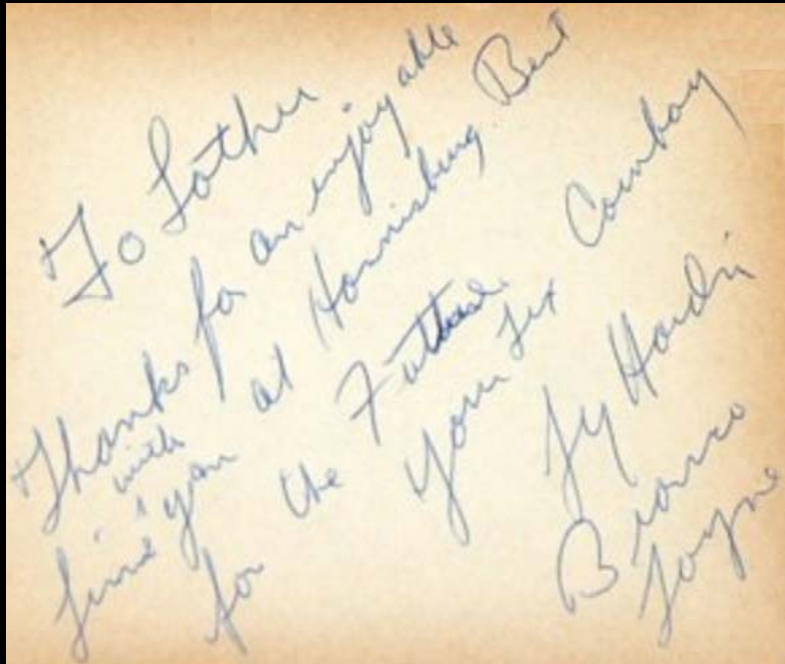 To Lother
Thanks for an enjoyable
time with you at Harrisburg. Best
for the Future.
Your Tex Cowboy
Ty Hardin
Bronco
Layne